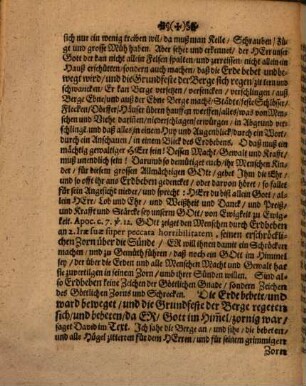 sich nur ein wenig treiben wil/ da muß man Keile/ Schrauben/ Züge
und grosse Müh haben. Aber sehet und erkennet/ der HErr unser
Gott der kan nicht allein Felsen spalten/ und zerreissen/ nicht allein ein
Hauß erschüttern/ sondern auch machen/ daß die Erde bebet und bewegt
wird/ und die Grundfeste der Berge sich regen/ zittern und
schwancken/ Er kan Berge versetzen/ versencken/ verschlingen/ auß
Berge Ebne/ und auß der Ebne Berge mach/ Städte/ feste Schlösser/
Flecken/ Dörffer/ Häuser übern hauffen werffen/ alles/ was von Menschen
und Viehe darinnen/ niederschlagen/ erwürgen/ in Abgrund verschlingt/
und daß alles in einem Huy und Augenblick/ durch ein Wort/
durch ein Anschauen/ in einem Blick des Erdbebens. O daß muß ein
mächtig gewaltiger HErr sein! Dessen Macht/ Gewalt und Krafft/
muß unendlich sein! Darumb so demütiget euch/ ihr Menschen Kinder/
für diesem grossen Allmächtigen GOtte/ gebet Ihm die Ehr/
und so offt ihr ans Erdbeben gedencket/ oder davon höret/ so fallet für
sein Angesicht nieder/ und sprecht: HErr du bist allein Gott/ allein
HErr/ Lob und Ehr/ und Weißheit und Danck/ und Preiß/
und Krafft und Stärcke sey unserm Gott/ von Ewigkeit zu Ewigkeit.
Apoc. c. 7. ℣. 12. GOtt zeiget den Menschen durch Erdbeben
an 2. Iræ suæ super peccata horribilitatem, seinen erschröcklichen
Zorn über die Sünde/ ER will ihnen damit ein Schröcken
machen/ und zu Gemüth führen/ daß noch ein GOtt im Himmel
sey/ der über die Erden und alle Menschen Macht und Gewalt hat
sie zu vertilgen in seinem Zorn/ umb ihrer Sünden willen. Sind also
Erdbeben keine Zeichen der Göttlichen Gnade/ sondern Zeichen
des Göttlichen Zorns und Schrecken. Die Erde bebete/ und
ward beweget/ und die Grundfeste der Berge regeten
sich/ und bebeten/ da ER/ Gott im Him̃el/ zornig war/
saget David im Text. Ich sahe die Berge an/ und sihe/ die bebeten/
und alle Hügel zitterten für dem HErrn/ und für seinem grimmigen
Zorn